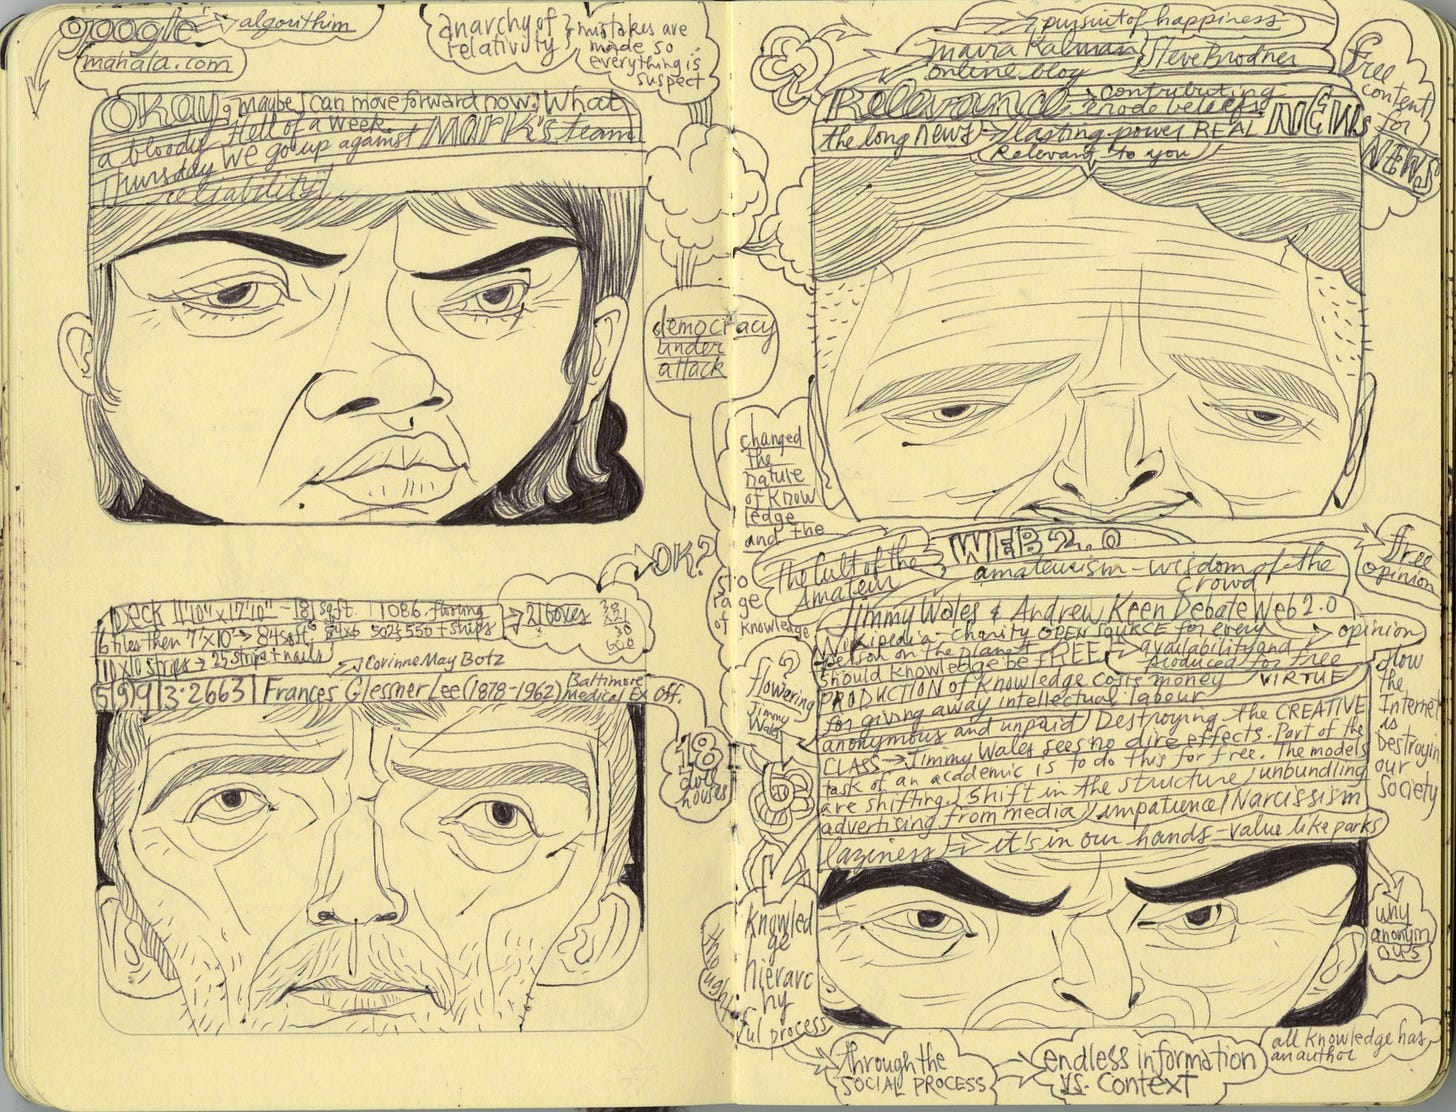 google → algorithim
mahala.com
anarchy of
relativity
mistakes are
made, so
everything is
suspect
OKay, maybe I can move forward now. What
a bloody Hell of a week.
Thursday we go up against Mark's team
reliability!
democracy
under
attack
OK?
Deck 11'10" x 17'10" - 181 sq ft.
1086. flooring
6 tiles then 7' x 10' → 84 sq ft.
10 x 10 strips → 25 strips + nails
21 boxes
→ Corinne May Botz
5|9|9|3.2663| Frances Glessner Lee (1878-1962) Baltimore
Medical Ex Off.
18
doll
houses
pursuit of happiness
Maira Kalman
Steve Brodner
online blog
free
content
for
NEWS
Relevance → contributing
erode beliefs
NEWs
the long news → lasting power REAL
Relevant to you
changed
the
nature
of Know
ledge
and the
storage
of
knowledge
WEB 2.0
the Cult of the
Amateur
amateurism - wisdom of the
Crowd
free
opinion
Jimmy Wales & Andrew Keen Debate Web 2.0
Wikipedia - Charity OPEN SOURCE for every
person on the planet
→ opinion
should knowledge be FREE → availability and
produced for free
VIRTUE
PRODUCTION of Knowledge costs money
for giving away intellectual labour
anonymous and unpaid) Destroying the CREATIVE
CLASS → Jimmy Wales sees no dire effects. Part of the
task of an academic is to do this for free. The models
are shifting) shift in the structure/unbundling
advertising from media/impatience/Narcissism
laziness → it's in our hands - value like parks
How
the
Internet
is
Destroying
our
Society
?
flowering
Jimmy
Wales
Knowled
ge
hierarc
hy
thoughtful process
why
anonym
ous
through the
SOCIAL PROCESS
endless information
vs. CONTEXT
all knowledge has
an author